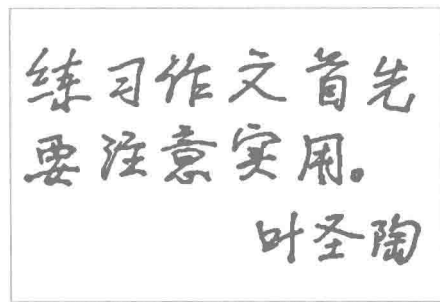 练习作文首先
要注意实用。
叶圣陶